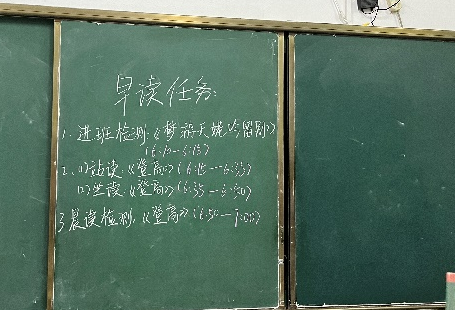 早读任务:
1.进班检测:《梦游天姥吟留别》
(6:10--6:15)
2.(1)站读:《登高》(6:15--6:35)
(2)坐读:《登高》(6:35--6:50)
3.晨读检测:《登高》(6:50--7:00)